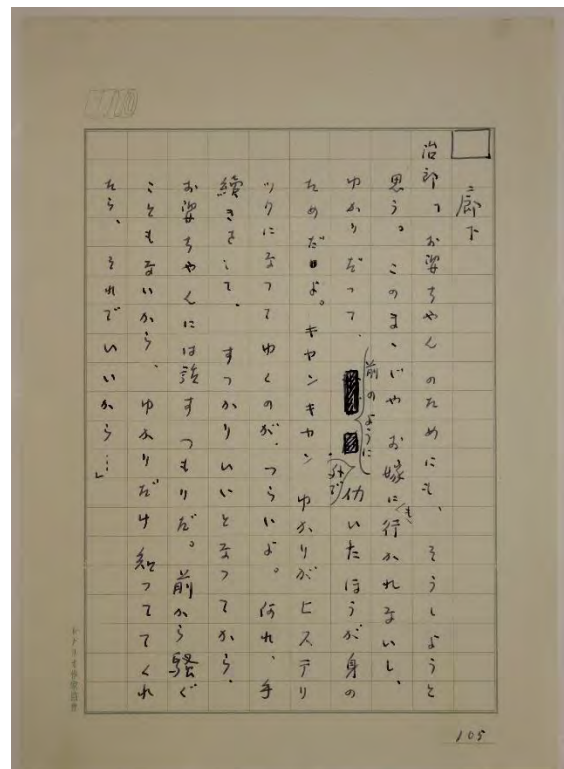 廊下
治郎「お婆ちゃんのためにも、そうしようと
思う。このまゝじゃお嫁にも行かれないし、
ゆかりだって、前のように外で仂いたほうが身の
ためだよ。キャンキャンゆかりがヒステリ
ックになってゆくのが、つらいよ。何れ、手
続きをして、すっかりいいとなってから、
お婆ちゃんには話すつもりだ。前から騒ぐ
こともないから、ゆかりだけ知っててくれ
たら、それでいいから…」
105